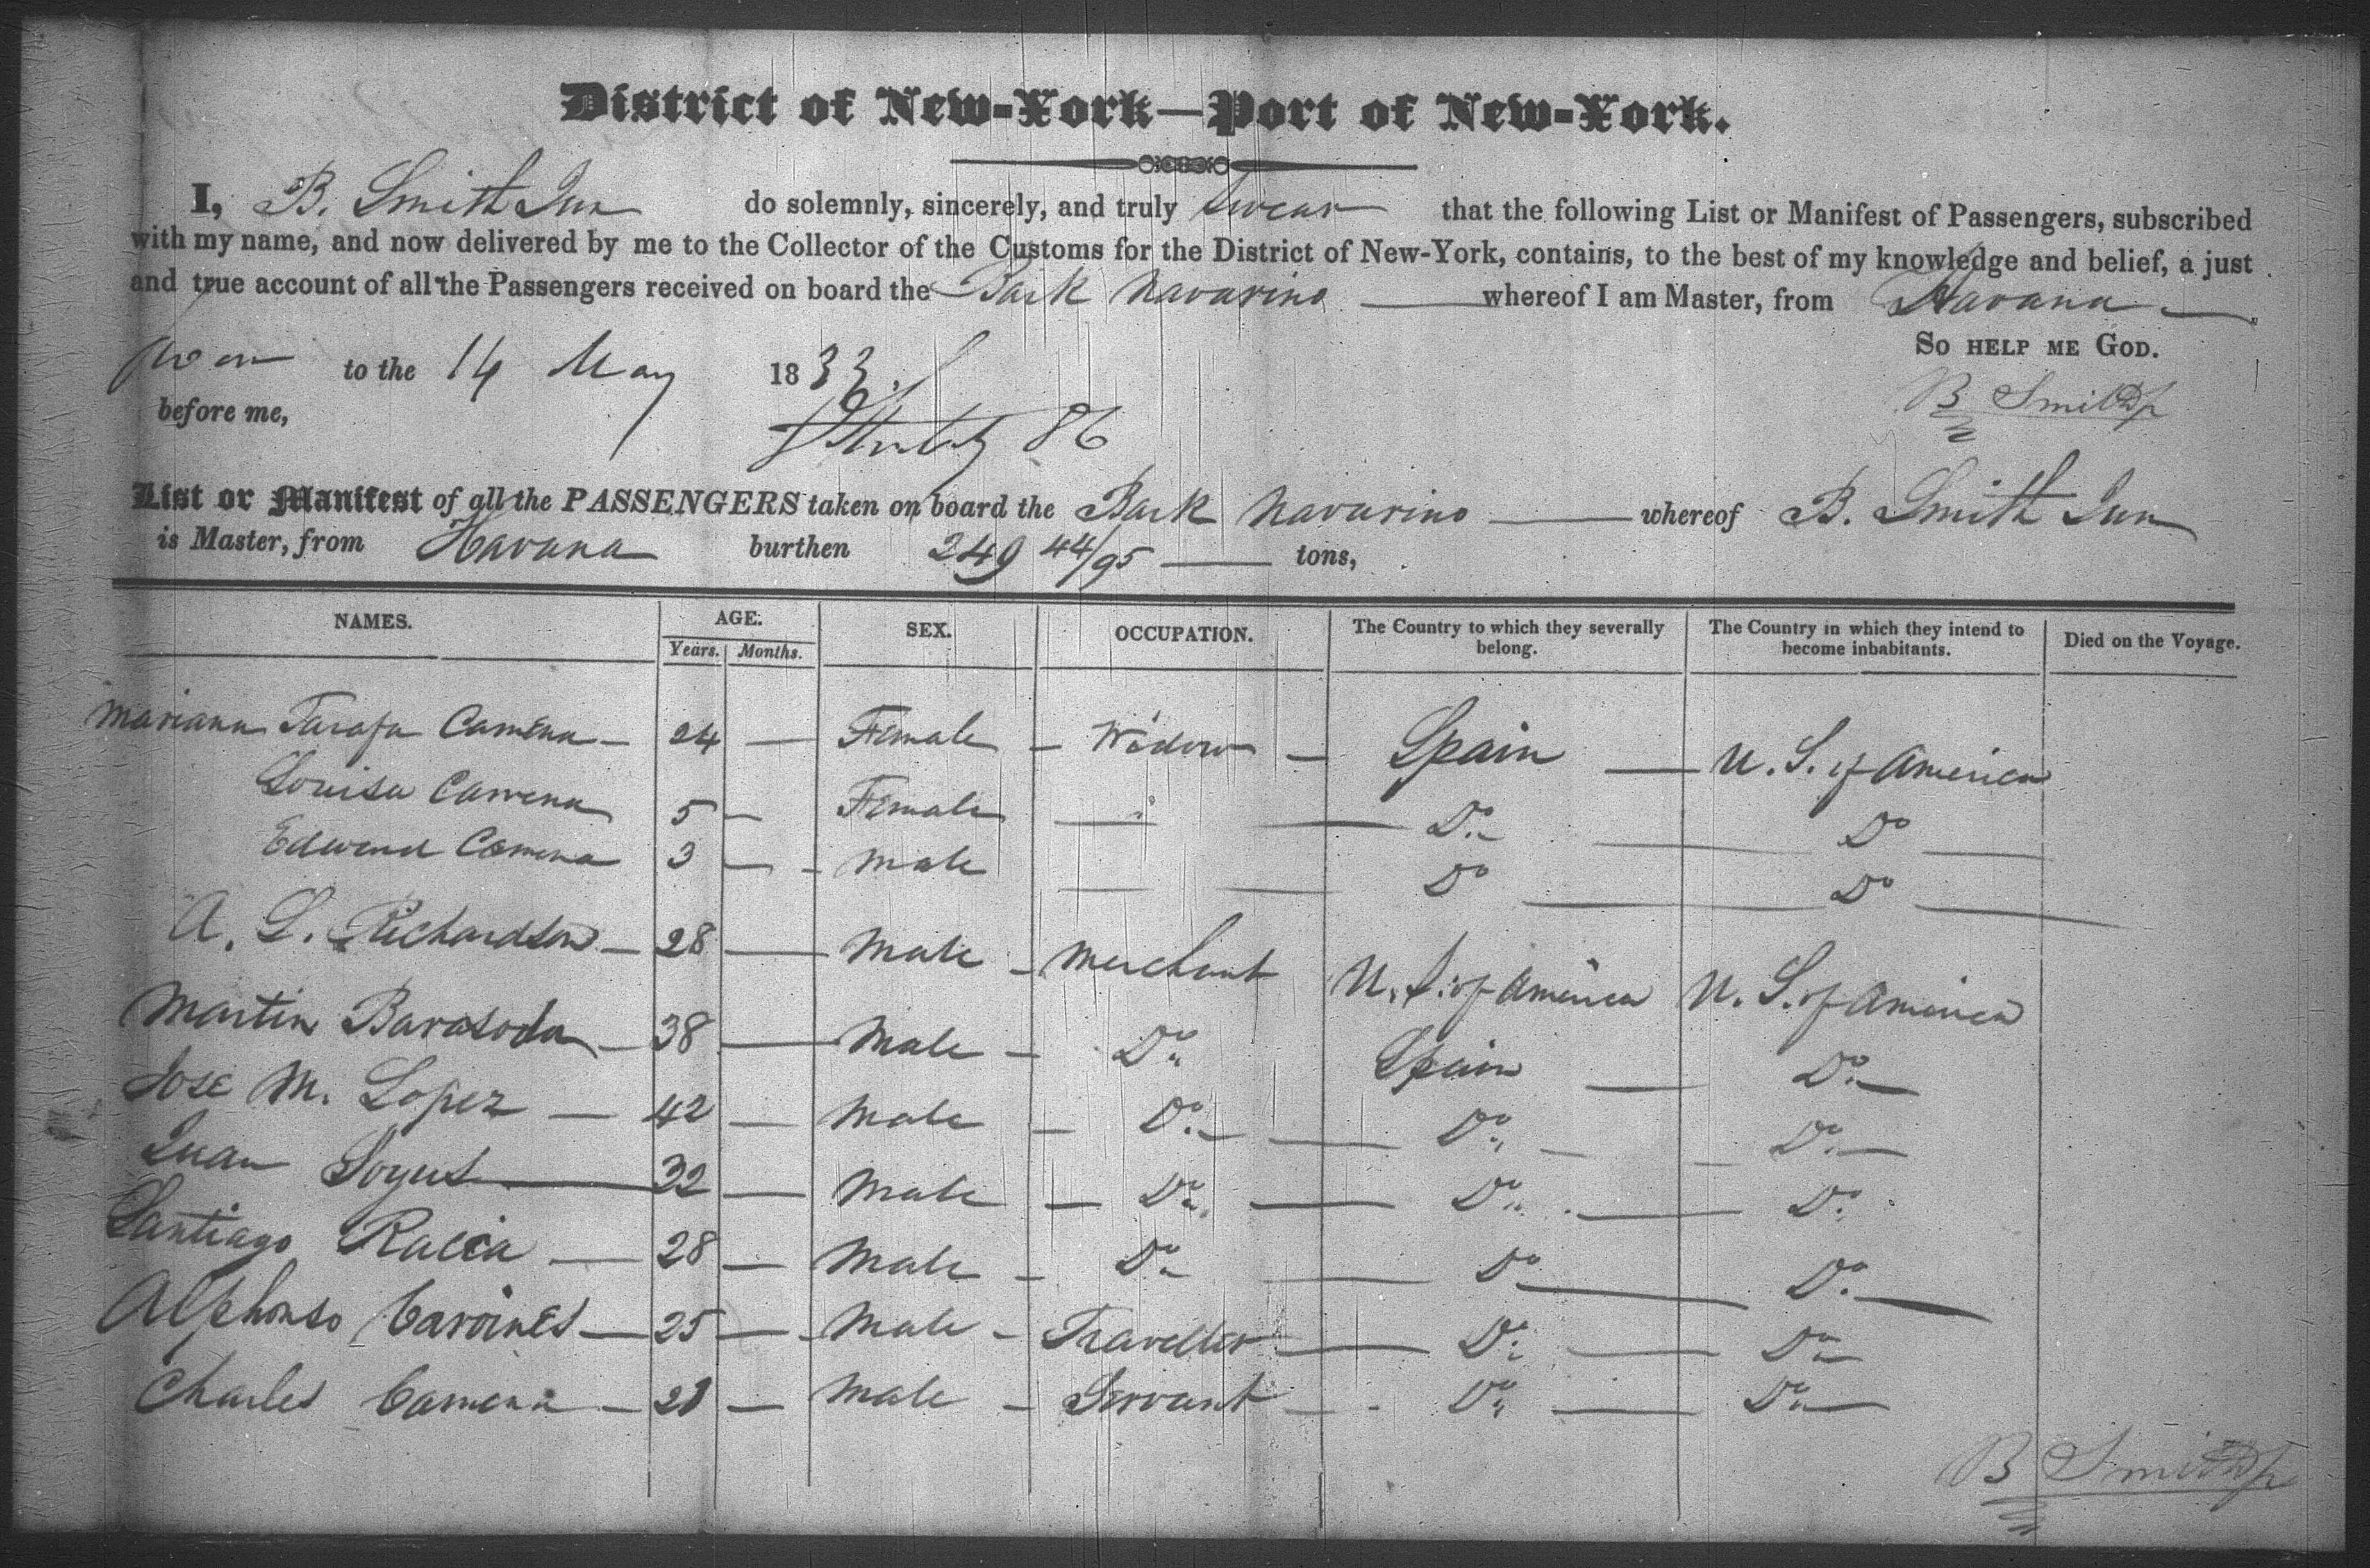 District of New-York—Port of New-York.
I, B. Smith Jun do solemnly, sincerely, and truly Swear that the following List or Manifest of Passengers, subscribed
with my name, and now delivered by me to the Collector of the Customs for the District of New-York, contains, to the best of my knowledge and belief, a just
and true account of all the Passengers received on board the Bark Navarino whereof I am Master, from Havana
So help me God.
to the 14 May 1833.
B Smith Jr
before me,
86
List or Manifest of all the PASSENGERS taken on board the Bark Navarino whereof B. Smith Jun
is Master, from Havana burthen 249 44/95 tons,
NAMES. AGE. SEX. OCCUPATION. The Country to which they severally belong. The Country in which they intend to become inhabitants. Died on the Voyage.
Years. Months.
Mariana Tarafa Camena 24 Female Widow Spain U. S. of America
Louisa Camena 5 Female Do Do
Edward Camena 3 Male Do Do
A. L. Richardson 28 Male Merchant U. S. of America U. S. of America
Martin Barasoda 38 Male Do Spain Do
Jose M. Lopez 42 Male Do Do Do
Juan 32 Male Do Do Do
Santiago 28 Male Do Do Do
Alphonso 25 Male Traveller Do Do
Charles Camena Male Servant Do Do
B Smith Jr